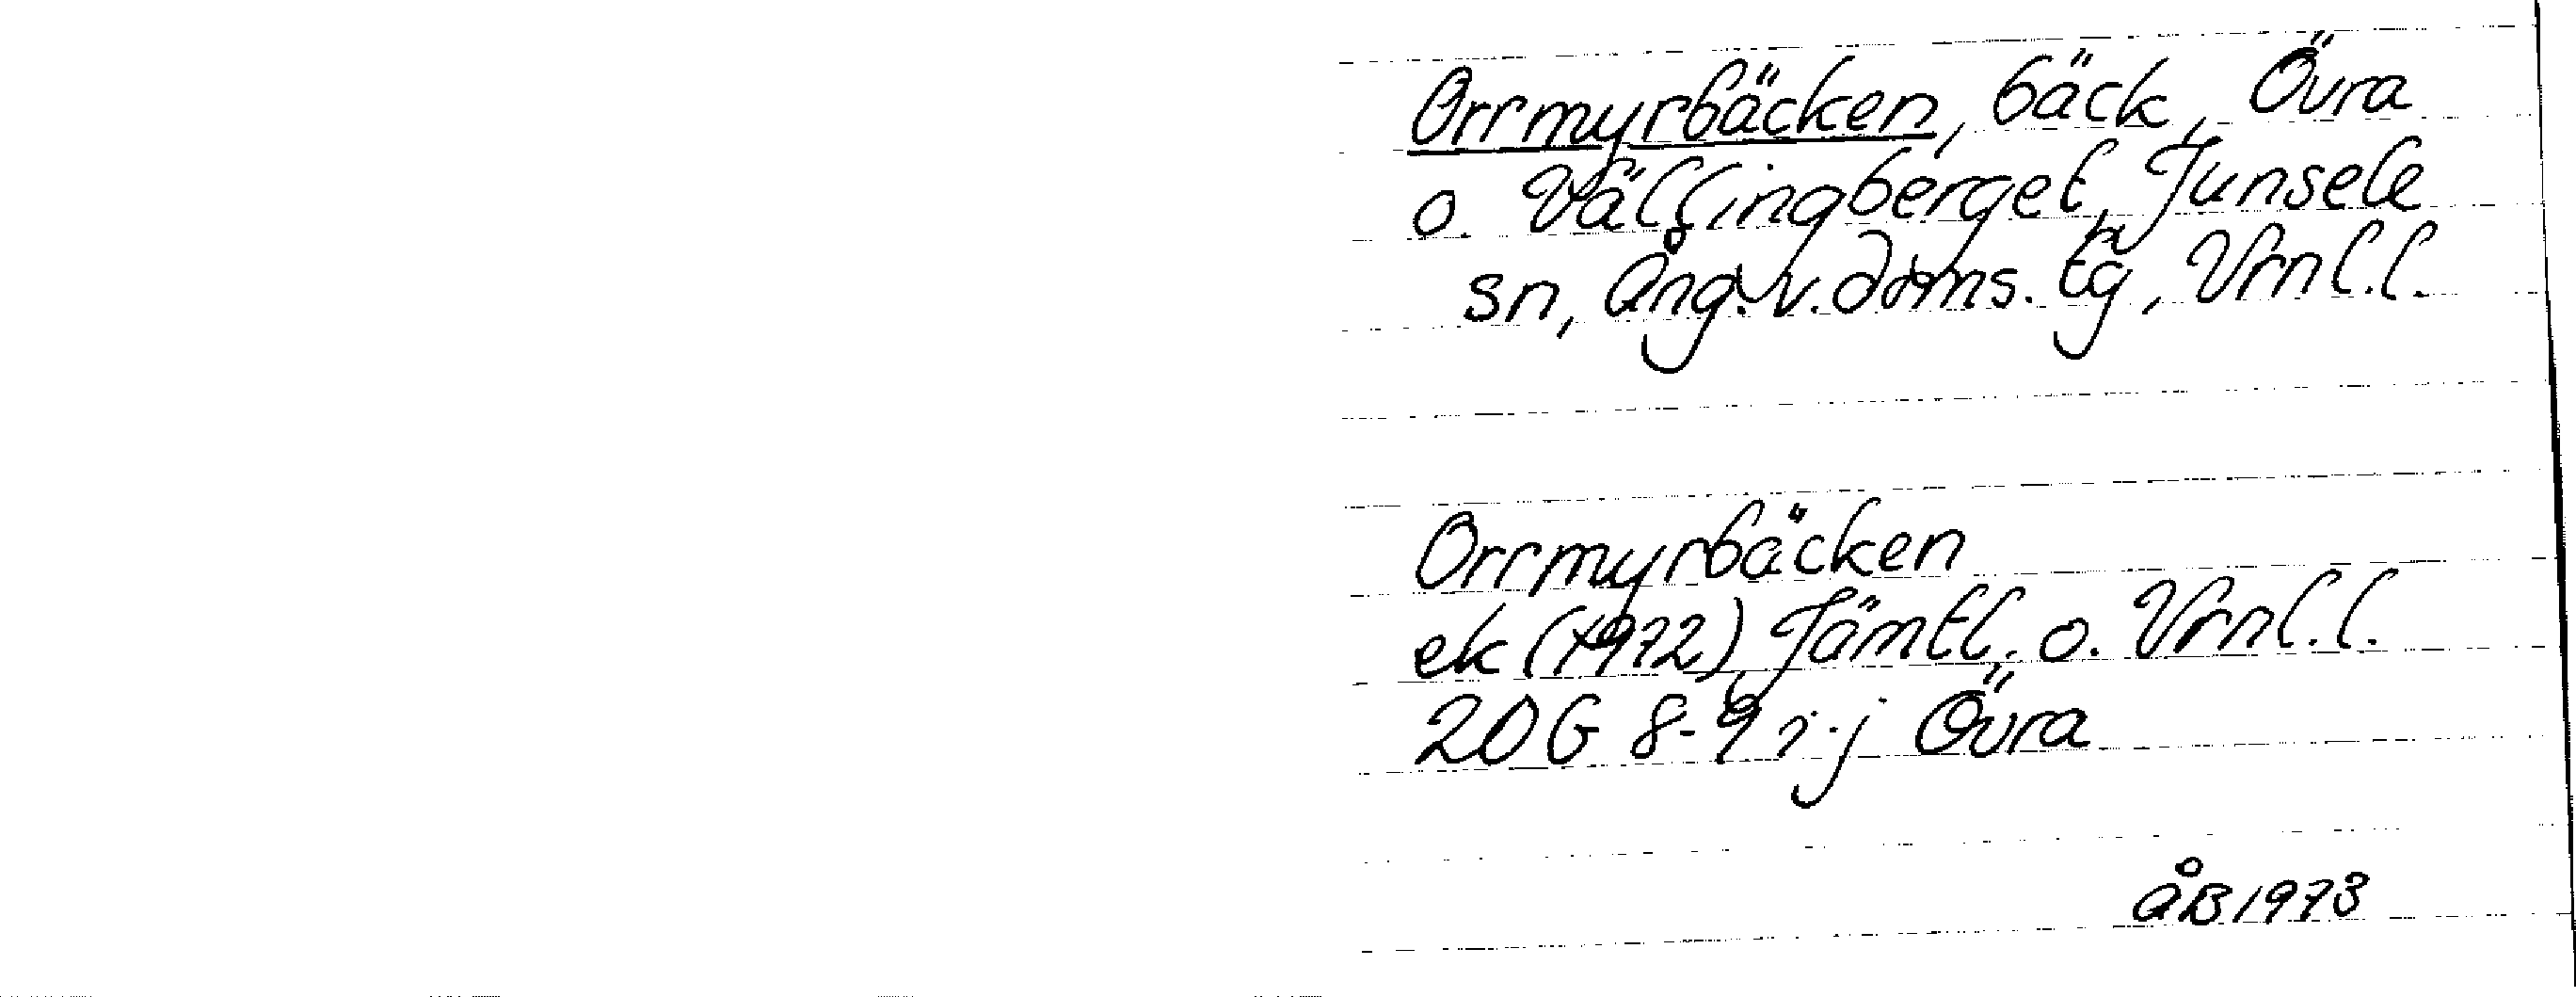 Orrmyrbäcken, bäck, Övra
o. Vällingberget, Junsele
sn, Ång. v. doms. tg, Vrnl.l.
Orrmyrbäcken
ek (1972), Jämtl. o. Vrnl.l.
20 G 8-9 i-j Övra
ÅB 1973